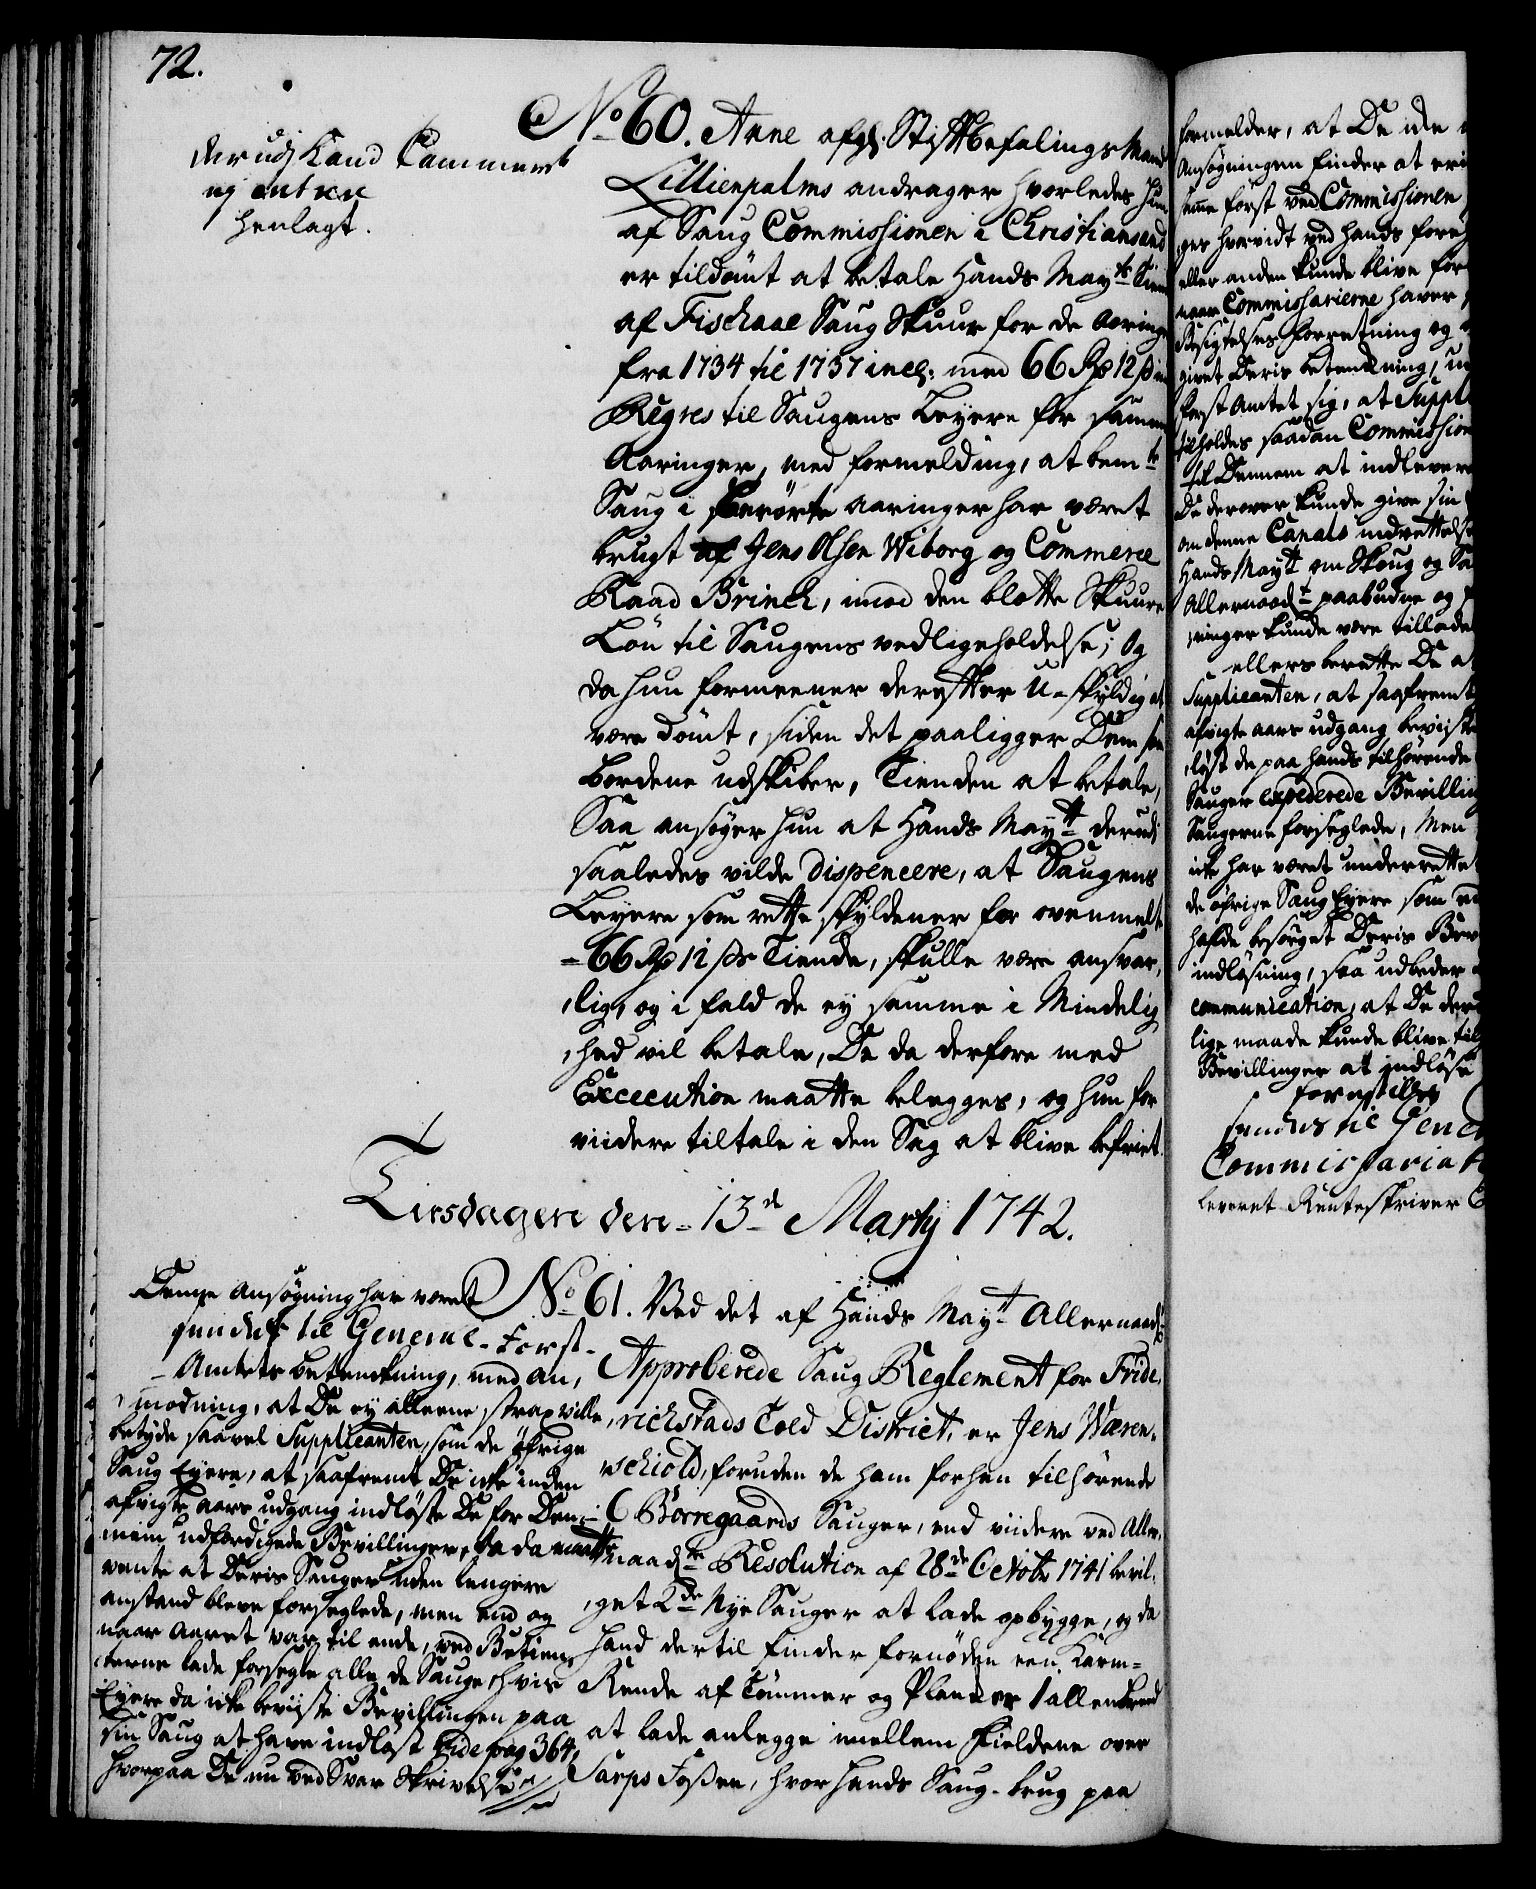 72.
derudj Kand Cammeret
ej entree
henlagt.
No 60. Anne afgl. StiftbefalingsMand
Lillienpalms andrager hvorledes hun
af Saug Commissionen i Christiansand
er tildömt at betale Hands Mayts Tiende
af Fischaae Saug Skuur for de Aaringer
fra 1734 til 1737 incl: med 66 Rdr 12 s
Regres til Saugens Leyere for samme
Aaringer, med formelding, at bemte
Saug i berörte aaringer har været
brugt af Jens Olsen Wiborg og Commerce
Raad Brinch, imod den blotte Skuure
Lön til Saugens vedligeholdelse; Og
da hun formeener derefter U-skyldig at
være dömt, siden det paaligger Dem som
Bordene udskiber, Tienden at betale,
Saa ansöger hun at Hands Maytt derudi
saaledes vilde dispencere, at Saugens
Leyere som rette skyldener for ovenmelte
66 Rdr 12 s Tiende, skulle være ansvar,
,lig, og i fald de ej samme i Mindelig
,hed vil betale, De da derfore med
Excecution maatte belegges, og hun for
viidere tiltale i den Sag at blive befriet.
Tirsdagen den 13de Martij 1742.
Denne Ansögning har været
sendt til General-Forst-
Amtets betenkning, med an,
,modning, at De ey alleene strax ville
betyde saavel Supplicanten, som de öfrige
Saug Eyere, at saafremt De icke inden
afvigte aars udgang indlöste De for Den,
nem udfærdigede Bevillinger, da de maatte
vente at Deris Sauger uden lengere
anstand bleve forseglede, men end og
naar Aaret var til ende, ved Betien,
,terne lade forsegle alle de Sauge, hvis
Eyere da icke beviiste Bevillingen paa
sin Saug at have indlöst vide pag 364,
hvorpaa De nu ved Svar Skrivelse
No 61. Ved det af Hands Maytt Allernaadst
Approberede Saug Reglement for Fride,
,richstads Told District, er Jens Wæren,
,schiold, foruden de ham forhen tilhörende
6 Borregaards Sauger, end viidere ved Aller,
naadste Resolution af 28de Octobr 1741 bevil,
,get 2de Nye Sauger at lade opbygge, og da
hand dertil finder fornöden een Karm-
Rende af Tömmer og Plancker 1 allen bred
at lade anlegge imellem Fieldene over
Sarps Fossen, hvor hands Saug-brug paa
formelder, at De icke
Ansögningen finder at eri
samme först ved Commissionen
,ges hvorvidt ved hands fore
eller anden kunde blive for
naar Commissarierne haver
Besigtelses forretning og
givet Deris betenkning, u
forst Amtet sig, at Suppl
tilholdes saadan Commission
til Dennem at indlevere
De derover kunde give sin
om denne Canals indrettelse
Hands Maytt om Skoug og Sa
Allernaadst paabudne og
,ninger kunde være tillade
ellers berette De at
Supplicanten, at saafremt
afvigte aars udgang beviste
,löst de paa hands tilhörende
Sauger expederede Bevilling
Saugerne forseglede, Men
icke har været underrette
de öfrige Saug Eyere som
hafde besörget Deris Bev
indlösning, saa udbeder
communication, at De der
lige maade kunde blive til
Bevillinger at indlöse
forestilles
sendes til Gene
Commissariat
leveret Renteskriver